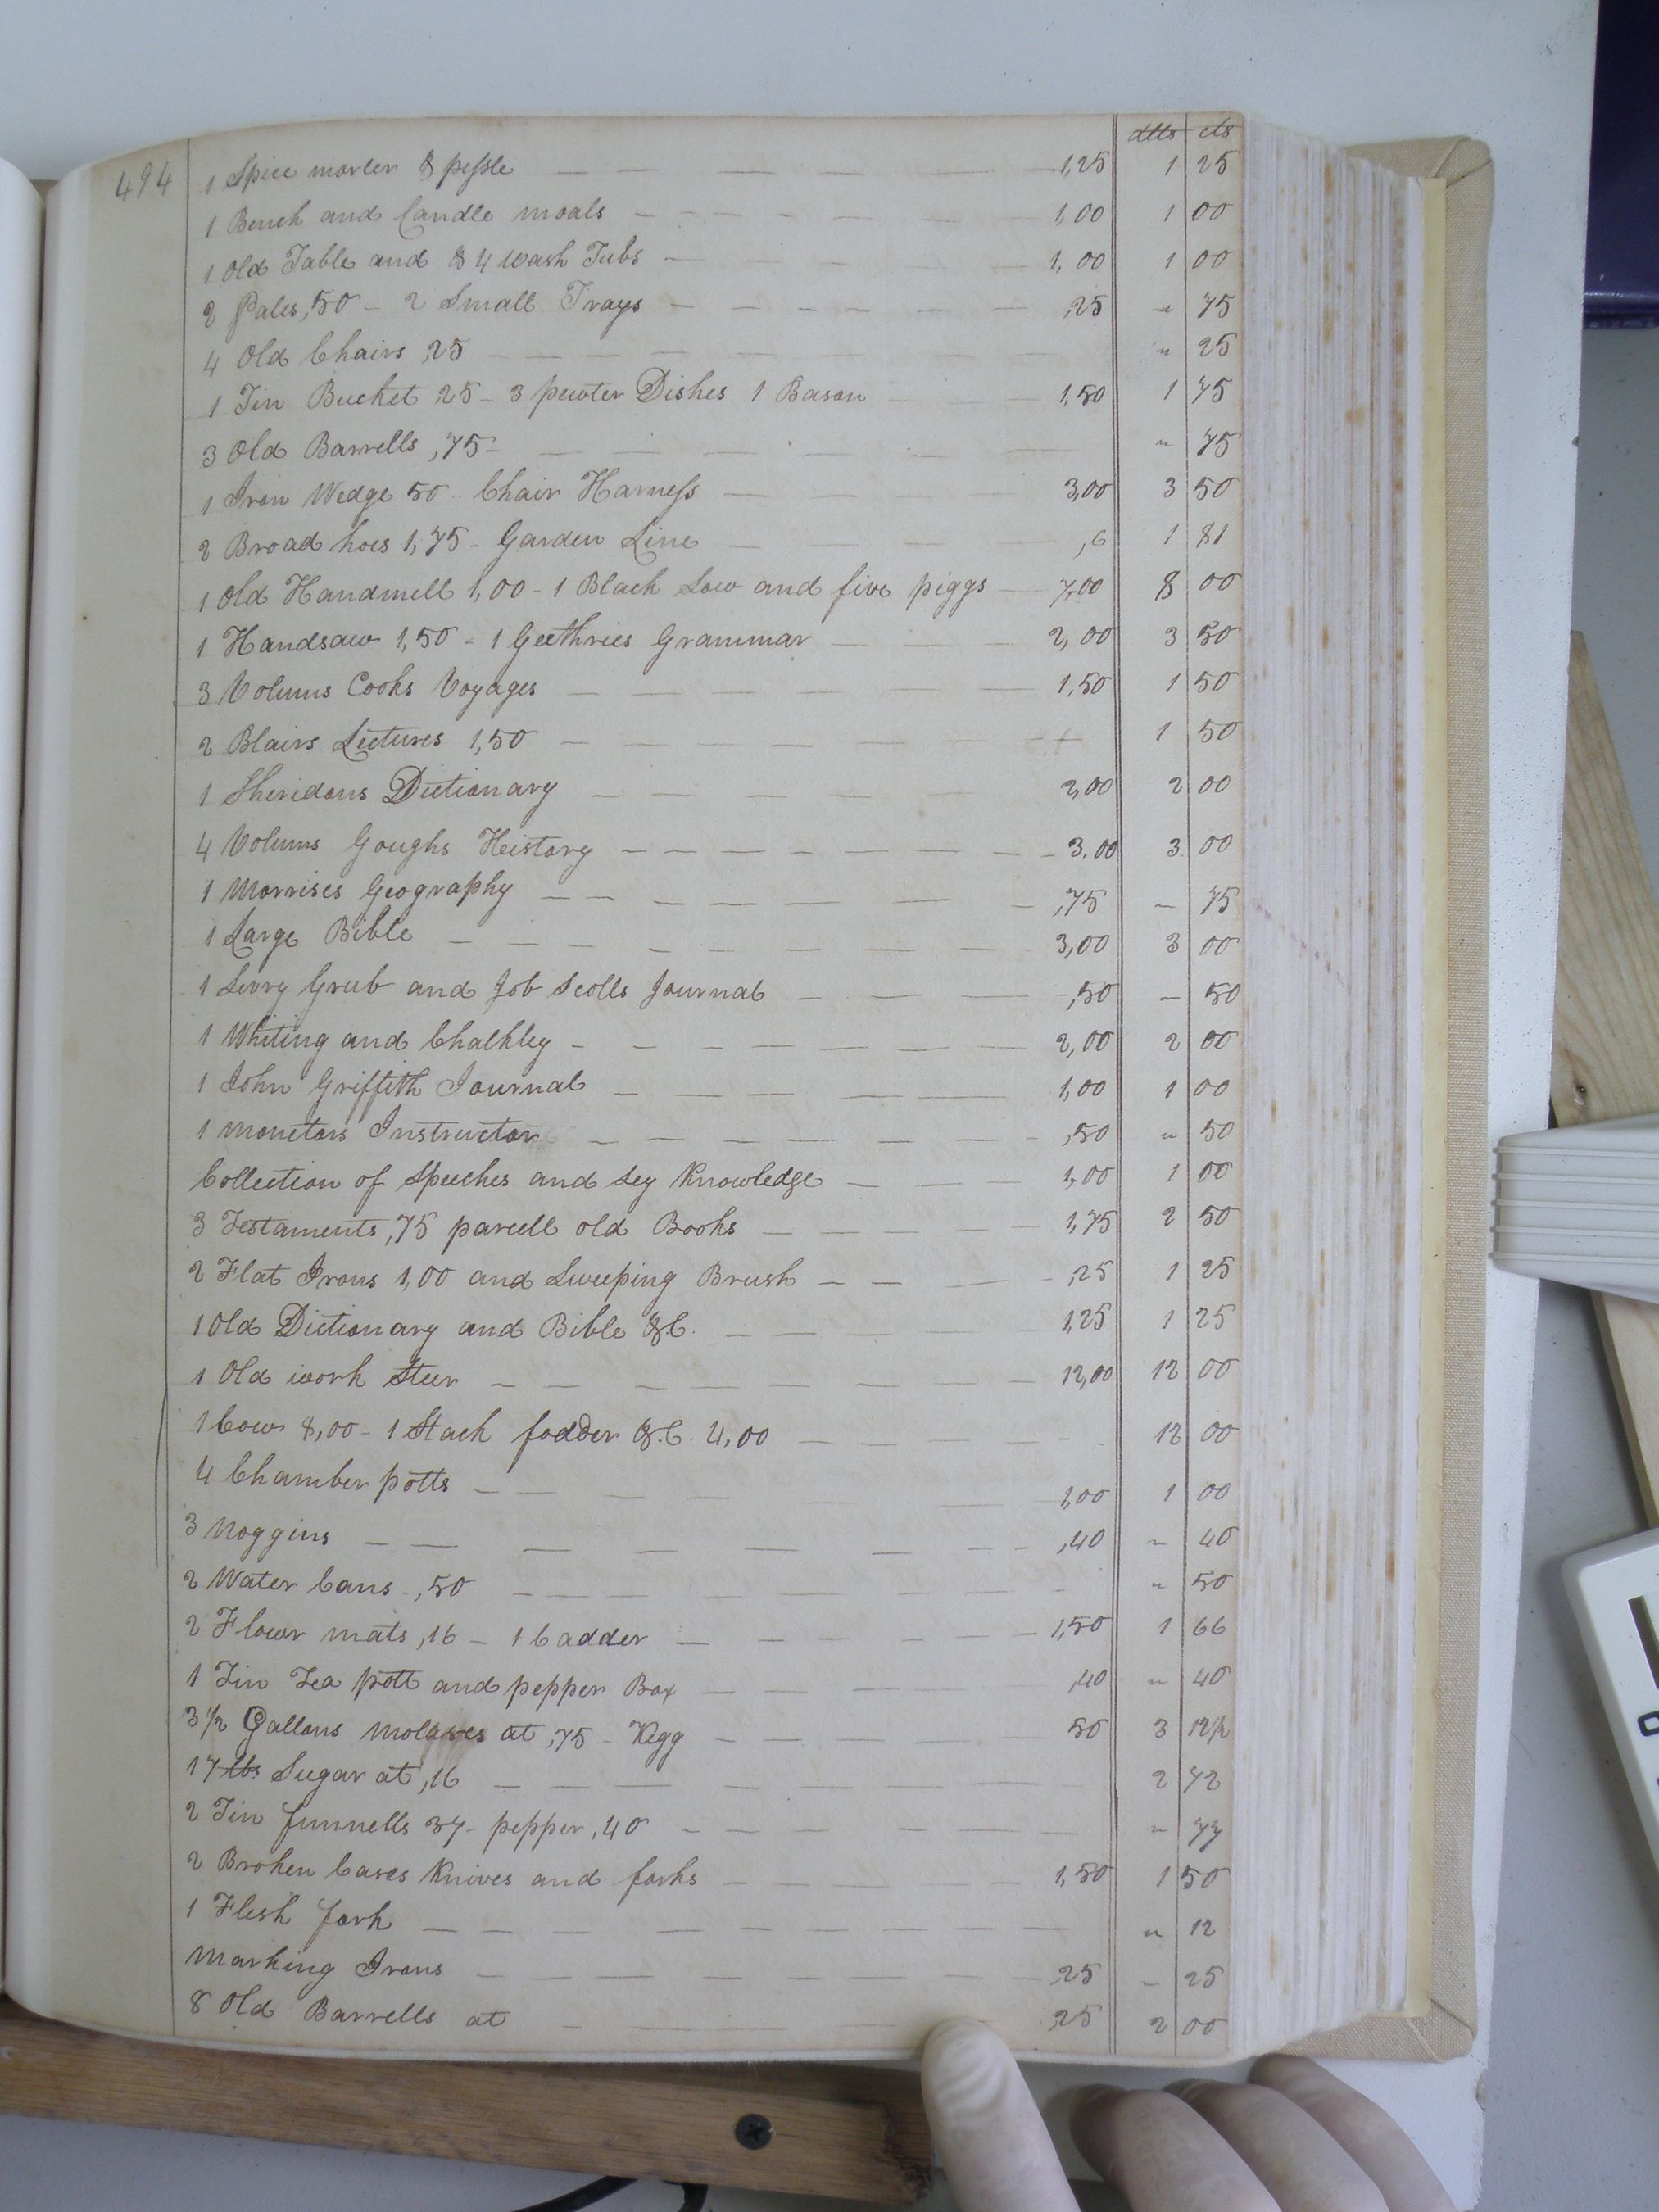 dlls cts
494 1 Spice morter & pessle 1,25 1 25
1 Bench and Candle moals 1,00 1 00
1 Old Table and & 4 wash Tubs 1,00 1 00
2 Pales ,50 - 2 Small Trays ,25 " 75
4 Old Chairs ,25 " 25
1 Tin Bucket 25 - 3 pewter Dishes 1 Bason 1,50 1 75
3 Old Barrells ,75 " 75
1 Iron Wedge 50 Chair Harness 3,00 3 50
2 Broad hoes 1,75 - Garden Line ,6 1 81
1 Old Handmell 1,00 - 1 Black Sow and five piggs 7,00 8 00
1 Handsaw 1,50 - 1 Geethries Grammar 2,00 3 50
3 Volums Cooks Voyages 1,50 1 50
2 Blairs Lectures 1,50 1 50
1 Sheridans Dictionary 2,00 2 00
4 Volums Goughs Heistory 3.00 3 00
1 Morrises Geography ,75 " 75
1 Large Bible 3,00 3 00
1 Grub and Job Scotts Journal ,50 " 50
1 Whiting and Chalkley 2,00 2 00
1 John Griffeth Journal 1,00 1 00
1 monetors Instructor ,50 " 50
Collection of Speeches and Sey Knowledge 1,00 1 00
3 Testaments ,75 parcell old Books 1,75 2 50
2 Flat Irons 1,00 and Sweeping Brush ,25 1 25
1 Old Dictionary and Bible &C. 1,25 1 25
1 Old work Steer 12,00 12 00
1 Cow 8,00 - 1 Stack fodder &.C. 4,00 12 00
4 Chamber potts 1,00 1 00
3 Noggins ,40 " 40
2 Water Cans ,50 " 50
2 Flowr mats ,16 - 1 Cadder 1,50 1 66
1 Tin Tea pott and pepper Box ,40 " 40
3 1/2 Gallons molasses at ,75 - Kegg 50 3 12 1/2
17 lbs Sugar at ,16 2 72
2 Tin funnells 37 - pepper ,40 " 77
2 Broken Cases Knives and forks 1,50 1 50
1 Flesh fork " 12
Marking Irons ,25 " 25
8 Old Barrells at ,25 2 00